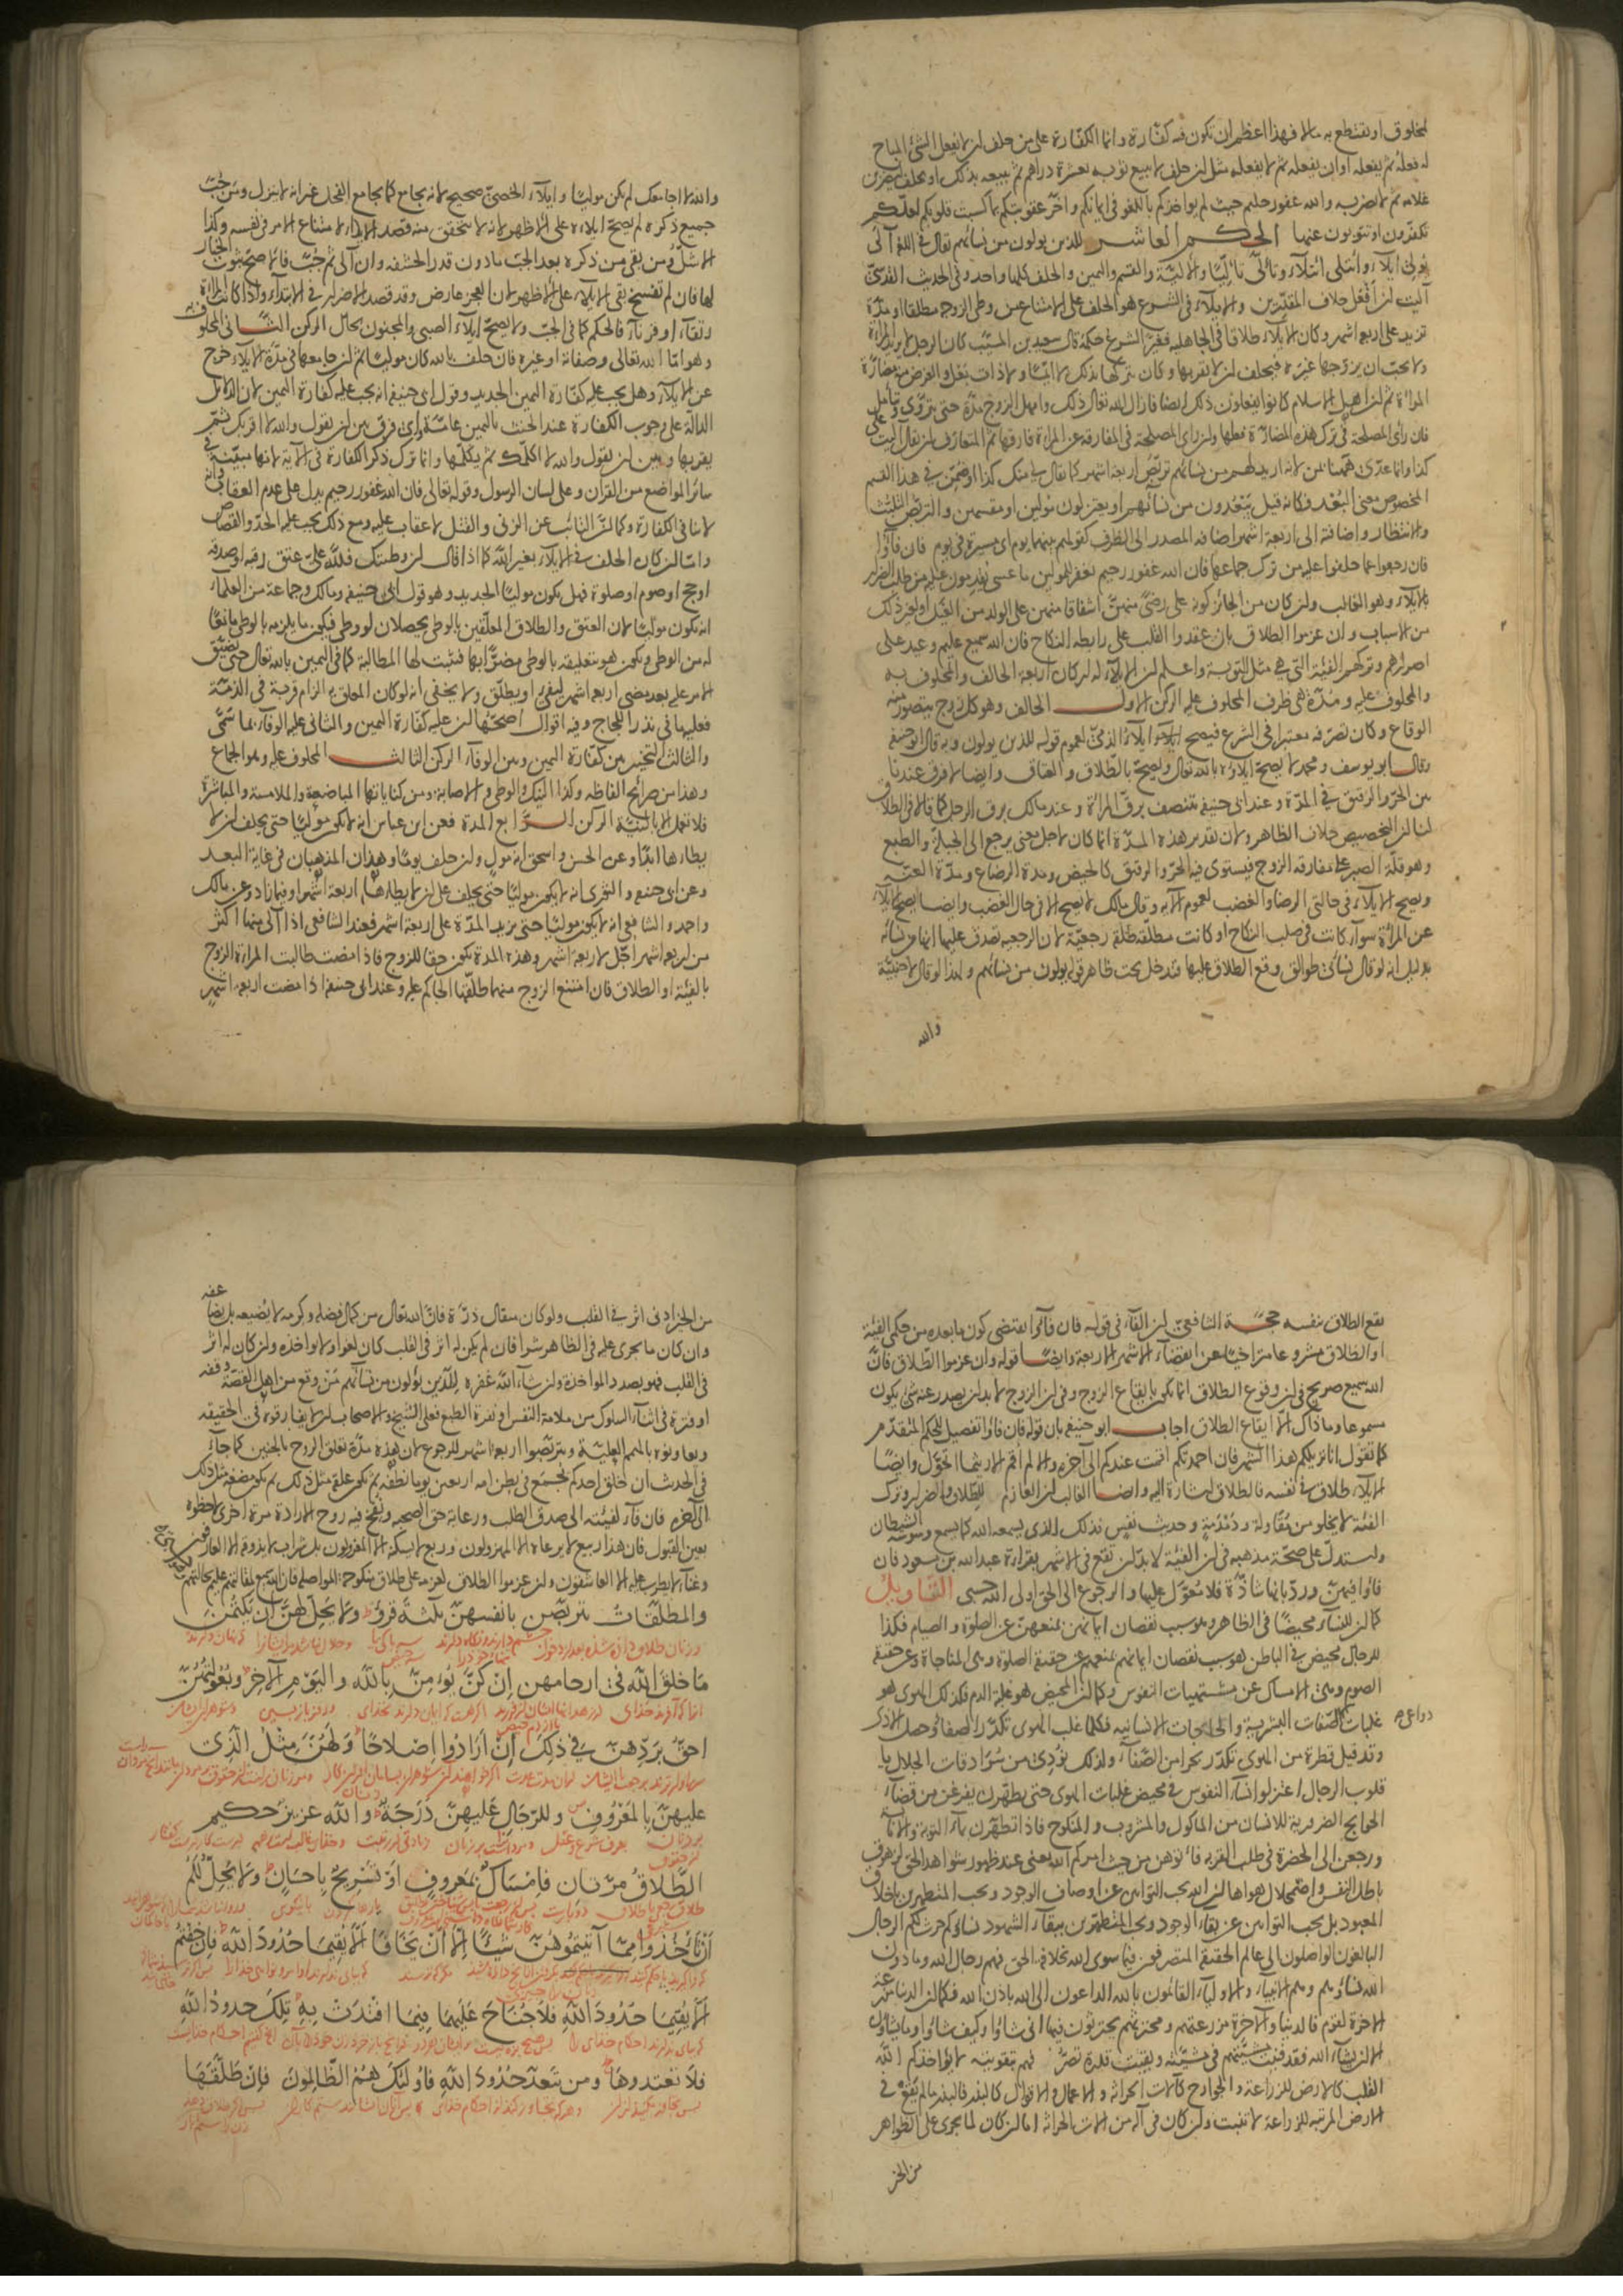 المخلوق او يقتطع به مالا فهذا اعظم ان تكون فيه كفارة وانما الكفارة على من حلف ان لا يفعل الشئ المباح
له فعله ثم يفعله او ان يفعله ثم لا يفعله مثل ان حلف لا يبيع ثوبه بعشرة دراهم ثم يبيعه بذلك او يحلف ليضربن
غلامه ثم لا يضربه والله غفور حليم حيث لم يواخذكم باللغو فى ايمانكم واخر عقوبتكم بما كسبت قلوبكم لعلكم
تكفرون او تتوبون عنها الحكم العاشر للذين يولون من نسائهم يقال فى اللغة آلى
يولى ايلاء وائتلى ائتلاء وتألى تأليا والالية والقسم واليمين والحلف كلها واحد وفى الحديث القدسى
آليت ان افعل خلاف المقدرين والايلاء فى الشرع هو الحلف على الامتناع من وطى الزوجة مطلقا او مدة
تزيد على اربعة اشهر وكان الايلاء طلاقا فى الجاهلية فغير الشرع حكمه قال سعيد بن المسيب كان الرجل لا يريد المراة
ولا يحب ان يتزوجها غيره فيحلف ان لا يقربها وكان يتركها بذلك لا ايما ولا ذات بعل والغرض منه مضارة
المراة ثم ان اهل الاسلام كانوا يفعلون ذلك ايضا فازال الله تعالى ذلك وامهل الزوج مدة حتى يتروى ويتامل
فان راى المصلحة فى ترك هذه المضارة فعلها وان راى المصلحة فى المفارقة عن المراة فارقها ثم المتعارف ان يقال آليت على
كذا وانما عدى ههنا بمن لانه اريد لهم من نسائهم تربص اربعة اشهر كما يقال لى منك كذا او ضمن فى هذا القسم
المخصوص معنى البعد فكانه قيل يبعدون من نسائهم او يعتزلون مولين او مقسمين والتربص التلبث
والانتظار واضافته الى اربعة اشهر اضافة المصدر الى الظرف كقولهم بينهما يوم اى مسيرة فى يوم فان فاؤا
فان رجعوا عما حلفوا عليه من ترك جماعها فان الله غفور رحيم يغفر للمولين ما عسى يقدمون عليه من طلب الضرار
بالايلاء وهو الغالب وان كان من الجائز كونه على رضى منهن اشفاقا منهن على الولد من الغيل او لغير ذلك
من الاسباب وان عزموا الطلاق بان عقدوا القلب على رابطة النكاح فان الله سميع عليم وعيد على
اصرارهم وتركهم الفيئة التى هى مثل التوبة واعلم ان الايلاء له اركان اربعة الحالف والمحلوف به
والمحلوف عليه ومدة هى ظرف المحلوف عليه الركن الاول الحالف وهو كل زوج يتصور منه
الوقاع وكان تصرفه معتبرا فى الشرع فيصح ايلاء الذمى لعموم قوله للذين يولون وبه قال ابو حنيفة
وقال ابو يوسف ومحمد لا يصح ايلاؤه بالله تعالى ويصح بالطلاق والعتاق وايضا لا فرق عندنا
بين الحر والرقيق فى المدة وعند ابى حنيفة تتنصف برق المراة وعند مالك برق الرجل كما قالا فى الطلاق
لنا ان التخصيص خلاف الظاهر ولان تقدير هذه المدة انما كان لاجل معنى يرجع الى الجبلة والطبع
وهو قلة الصبر على مفارقة الزوج فيستوى فيه الحر والرقيق كالحيض ومدة الرضاع ومدة العنة
ويصح الايلاء فى حالتى الرضا والغضب لعموم الآية وقال مالك لا يصح الا فى حال الغضب وايضا يصح الايلاء
عن المراة سواء كانت فى صلب النكاح او كانت مطلقة طلقة رجعية لان الرجعية يصدق عليها انها من نسائه
بدليل انه لو قال نسائى طوالق وقع الطلاق عليها فتدخل تحت ظاهر قوله يولون من نسائهم ولهذا لو قال لاجنبية
والله
والله لا اجامعك لم يكن موليا وايلاء الخصى صحيح لانه يجامع كما يجامع الفحل غير انه لا ينزل ومن جب
جميع ذكره لم يصح ايلاؤه على الاظهر لانه لا يتحقق منه قصد الايذاء لامتناع الامر فى نفسه وكذا
الاشل ومن بقى من ذكره بعد الجب ما دون قدر الحشفة وان آلى ثم جب فالاصح ثبوت الخيار
لها فان لم تفسخ بقى الايلاء على الاظهر لان العجز عارض وقد قصد الاضرار فى الابتداء واذا كانت المراة
رتقاء او قرناء فالحكم كما فى الجب ولا يصح ايلاء الصبى والمجنون بحال الركن الثانى المحلوف به
وهو اما الله تعالى وصفاته او غيره فان حلف بالله كان موليا ثم ان جامعها فى مدة الايلاء خرج
عن الايلاء وهل يجب عليه كفارة اليمين الجديد وقول ابى حنيفة انه يجب عليه كفارة اليمين لان الدلائل
الدالة على وجوب الكفارة عند الحنث باليمين عامة واى فرق بين ان يقول والله لا اقربك ثم
يقربها وبين ان يقول والله لا اكلمك ثم يكلمها وانما ترك ذكر الكفارة فى الآية لانها مبينة فى
سائر المواضع من القرآن وعلى لسان الرسول وقوله تعالى فان الله غفور رحيم يدل على عدم العقاب وانه
لا ينافى الكفارة وكما ان التائب عن الزنى والقتل لا عقاب عليه ومع ذلك يجب عليه الحد والقصاص
واما ان كان الحلف فى الايلاء بغير الله كما اذا قال ان وطئتك فلله على عتق رقبة او صدقة
او حج او صوم او صلوة فهل يكون موليا الجديد وهو قول ابى حنيفة ومالك وجماعة من العلماء
انه يكون موليا لان العتق والطلاق المعلقين بالوطى يحصلان لو وطى فيكون ما يلزمه بالوطى مانعا
له من الوطى ويكون هو بتعليقه بالوطى مضرا بها فتثبت لها المطالبة كما فى اليمين بالله تعالى حتى يضيق
الامر عليه بعد مضى اربعة اشهر ليفئ او يطلق ولا يخفى انه لو كان المعلق به الزام قربة فى الذمة
فعليه ما فى نذر اللجاج وفيه اقوال اصحها ان عليه كفارة اليمين والثانى عليه الوفاء بما سمى
والثالث التخيير بين كفارة اليمين وبين الوفاء الركن الثالث المحلوف عليه وهو الجماع
وهذا من صرائح الفاظه وكذا النيك والوطى والاصابة ومن كناياتها المباضعة والملامسة والمباشرة
فلا تعمل الا بالنية الركن الرابع المدة فعن ابن عباس انه لا يكون موليا حتى يحلف ان لا
يطاها ابدا وعن الحسن واسحق انه مول وان حلف يوما وهذان المذهبان فى غاية البعد
وعن ابى حنيفة والثورى انه لا يكون موليا حتى يحلف على ان لا يطاها اربعة اشهر او فيما زاد وعن مالك
واحمد والشافعى انه لا يكون موليا حتى يزيد المدة على اربعة اشهر فعند الشافعى اذا آلى منها اكثر
من اربعة اشهر اجل لاربعة اشهر وهذه المدة تكون حقا للزوج فاذا مضت طالبت المراة الزوج
بالفيئة او الطلاق فان امتنع الزوج منهما طلقها الحاكم عليه وعند ابى حنيفة اذا مضت اربعة اشهر
يقع الطلاق بنفسه حجة الشافعى ان الفاء فى قوله فان فاؤا يقتضى كون ما بعده من حكمى الفيئة
او الطلاق مشروعا متراخيا عن انقضاء الاشهر الاربعة وايضا قوله وان عزموا الطلاق فان
الله سميع صريح فى ان وقوع الطلاق انما يكون بايقاع الزوج وفى ان الزوج لا بد ان يصدر عنه شئ يكون
مسموعا وما ذاك الا ايقاع الطلاق اجاب ابو حنيفة بان قوله فان فاؤا تفصيل للحكم المتقدم
كما تقول انا نزيلكم هذا الشهر فان احمدتكم اقمت عندكم الى آخره والا لم اقم الا ريثما اتحول وايضا
الايلاء طلاق فى نفسه فالطلاق اشارة اليه وايضا الغالب ان العازم للطلاق والضرار وترك
الفيئة لا يخلو من مقاولة ودندنة وحديث نفس فذلك الذى يسمعه الله كما يسمع وسوسة الشيطان
واستدل على صحة مذهبه فى ان الفيئة لا بد ان تقع فى الاشهر بقراءة عبد الله بن مسعود فان
فاؤا فيهن ورد بانها شاذة فلا تعول عليها والرجوع الى الحق اولى الله حسبى التاويل
كما ان للنساء محيضا فى الظاهر وهو سبب نقصان ايمانهن لمنعهن عن الصلوة والصيام فكذا
للرجال محيض فى الباطن هو سبب نقصان ايمانهم لمنعهم عن حقيقة الصلوة وهى المناجاة وعن حقيقة
الصوم وهى الامساك عن مشتهيات النفوس وكما ان المحيض هو غلبة الدم فكذلك الهوى هو
غلبات الصفات البشرية والحاجات الانسانية فكلما غلب الهوى تكدر الصفا وحصل الاذى
دواعى
وقد قيل قطرة من الهوى تكدر بحرا من الصفاء ولذلك نودى من سرادقات الجلال يا
قلوب الرجال اعتزلوا نساء النفوس فى محيض غلبات الهوى حتى يطهرن يفرغن من قضاء
الحوايج الضرورية للانسان من الماكول والمشروب والمنكوح فاذا تطهرن بماء التوبة والانابة
ورجعن الى الحضرة فى طلب القربة فاتوهن من حيث امركم الله يعنى عند ظهور شواهد الحق لزهوق
باطل النفس واضمحلال هواها ان الله يحب التوابين عن اوصاف الوجود ويحب المتطهرين باخلاق
المعبود بل يحب التوابين عن بقاء الوجود ويحب المتطهرين ببقاء الشهود نساؤكم حرث لكم الرجال
البالغون الواصلون الى عالم الحقيقة المتصرفون فيما سوى الله بخلافة الحق فهم رجال الله وما دون
الله نساؤهم وهم الانبياء والاولياء القائمون بالله الداعون الى الله باذن الله فكما ان الدنيا مزرعة
الاخرة لقوم فالدنيا والآخرة مزرعتهم ومحرثهم يحرثون فيها انى شاؤا وكيف شاؤا وما يشاؤن
الا ان يشاء الله فقد فنيت مشيئتهم فى مشيئته وبقيت قدرة تصرفهم بتقويته لا يؤاخذكم الله
القلب كالارض للزراعة والجوارح كآلات الحراثة والاعمال والاقوال كالبذر فالبذر ما لم يقع فى
الارض المرتبة للزراعة لا ينبت وان كان فى آلة من آلات الحراثة اما ان كان لما يجرى على الظواهر
من الخير
من الخير ادنى اثر فى القلب ولو كان مثقال ذرة فان الله تعالى من كمال فضله وكرمه لا يضيعه بل يضاعفه
وان كان ما يجرى عليه فى الظاهر شرا فان لم يكن له اثر فى القلب كان لغوا ولا يواخذه وان كان له اثر
فى القلب فهو بصدد المواخذة وان شاء الله غفره للذين يولون من نسائهم من وقع من اهل القصد له وقفة
او فترة فى اثناء السلوك من ملامة النفس او نفرة الطبع فعلى الشيخ والاصحاب ان لا يفارقوه فى الحقيقة
ويعاونوه بالهمم العلية ويتربصوا اربعة اشهر للرجوع لان هذه مدة تعلق الروح بالجنين كما جاء
فى الحديث ان خلق احدكم يجمع فى بطن امه اربعين يوما نطفة ثم يكون علقة مثل ذلك ثم يكون مضغة مثل ذلك
الى آخره فان فاء لفيئته الى صدق الطلب ورعاية حق الصحبة ونفخ فيه روح الارادة مرة اخرى لاحظوه
بعين القبول فان هذا ربيع لا يرعاه الا المهزولون وربع لا يسكنه الا المعزولون بل شراب لا يذوقه الا العارفون
وغناء لا يطرب عليه الا العاشقون وان عزموا الطلاق لعزمه على طلاق منكوحة المواصلة فان الله سميع لمقالتهم عليم بحالتهم
والمطلقات يتربصن بانفسهن ثلثة قروء ولا يحل لهن ان يكتمن
ما خلق الله فى ارحامهن ان كن يؤمن بالله واليوم الآخر وبعولتهن
احق بردهن فى ذلك ان ارادوا اصلاحا ولهن مثل الذى
عليهن بالمعروف وللرجال عليهن درجة والله عزيز حكيم
الطلاق مرتان فامساك بمعروف او تسريح باحسان ولا يحل لكم
ان تاخذوا مما آتيتموهن شيئا الا ان يخافا الا يقيما حدود الله فان خفتم
الا يقيما حدود الله فلا جناح عليهما فيما افتدت به تلك حدود الله
فلا تعتدوها ومن يتعد حدود الله فاولئك هم الظالمون فان طلقها